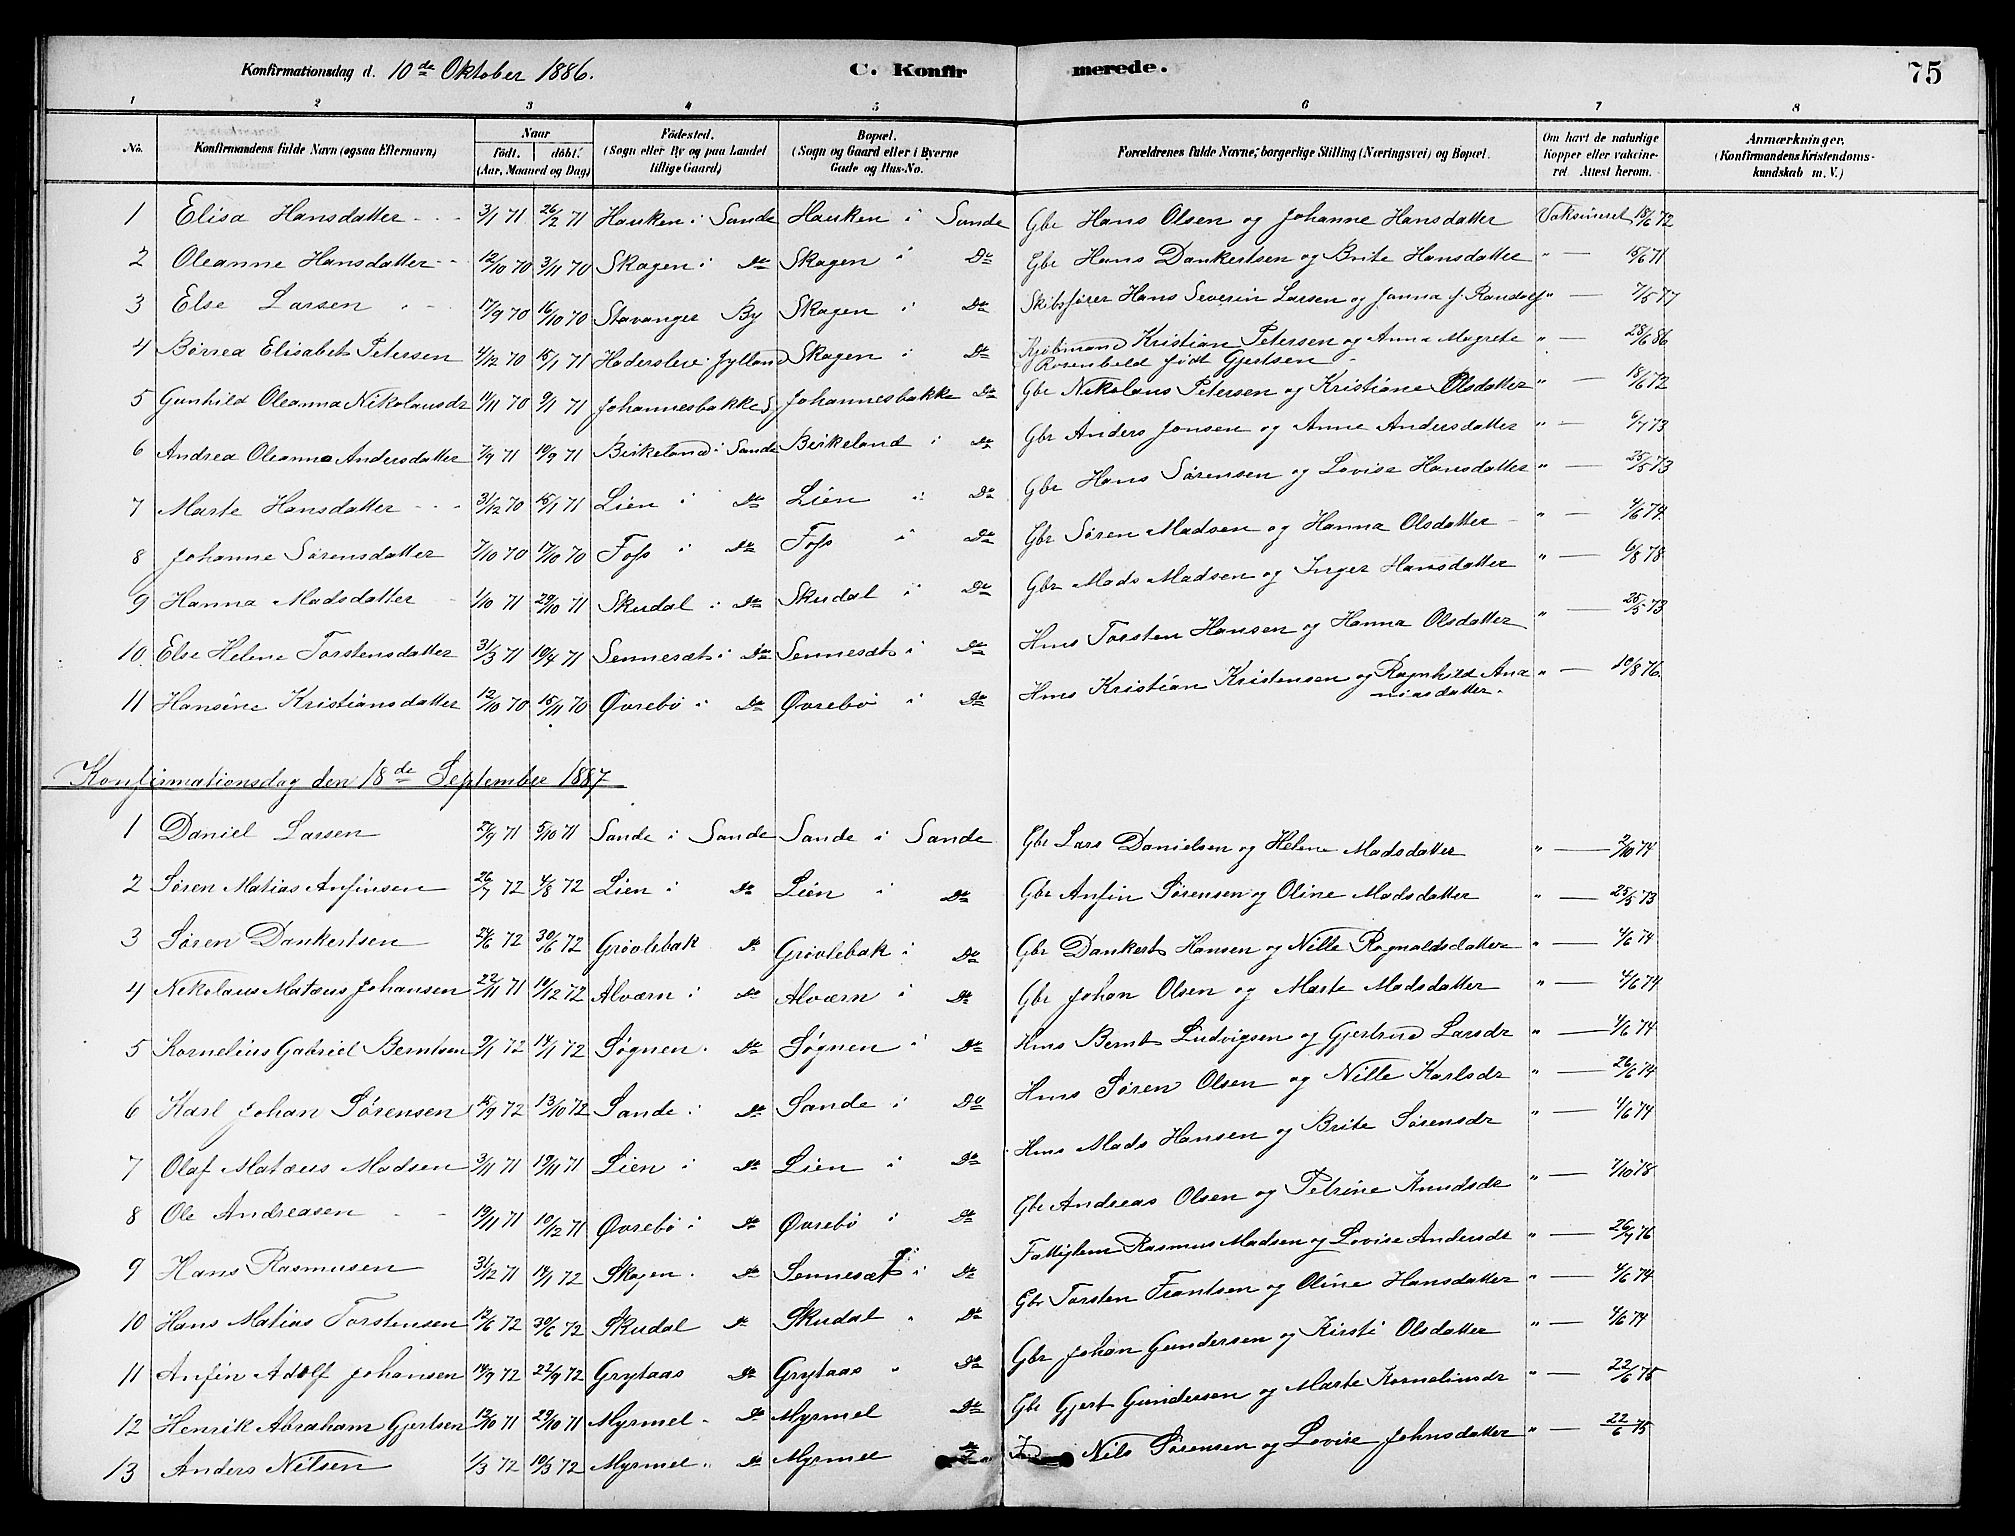 Konfirmationsdag d. 10de Oktober 1886. C. Konfirmerede. 75
1 2 3 4 5 6 7 8
No. Konfirmandens fulde Navn (ogsaa Efternavn) Naar födt. döbt. (Aar, Maaned og Dag) Födested. (Sogn eller By og paa Landet tillige Gaard) Bopæl. (Sogn og Gaard eller i Byerne Gade og Hus-No. Forældrenes fulde Navne, borgerlige Stilling (Næringsvei) og Bopæl. Om havt de naturlige Kopper eller vakcineret. Attest herom. Anmærkninger. (Konfirmandens Kristendomskundskab m. V.)
1 Elisa Hansdatter 3/1 71 26/2 71 Hauken i Sande Hauken i Sande Gbr Hans Olsen og Johanne Hansdatter Vaksineret 18/6 72
2 Oleanne Hansdatter 12/10 70 3/11 70 Skagen i Do Skagen i Do Gbr Hans Dankertsen og Brite Hansdatter " — 15/6 71
3 Else Larsen 17/9 70 16/10 70 Stavanger By Skagen i Do Skibsfører Hans Severin Larsen og Janna f. Randolf " — 7/5 77
4 Børrea Elisabet Petersen 4/12 70 15/1 71 Haderslev Jylland Skagen i Do Kjøbmand Kristian Petersen og Anna Magrete Rosenbeld født Gjertsen " — 28/6 86
5 Gunhild Oleanna Nikolausdr 11/11 70 9/1 71 Johannesbakke Johannesbakke Do Gbr Nikolaus Petersen og Kristiane Olsdatter " — 18/6 72
6 Andrea Oleanna Andersdatter 7/9 71 10/9 71 Birkeland i Sande Birkeland i Do Gbr Anders Jonsen og Anne Andersdatter " — 6/7 73
7 Marte Hansdatter 31/12 70 15/1 71 Lien i Do Lien i Do Gbr Hans Sørensen og Lovise Hansdatter " — 25/5 73
8 Johanne Sørensdatter 7/10 70 17/10 70 Foss i Do Foss i Do Gbr Søren Madsen og Hanna Olsdatter " — 4/6 74
9 Hanna Madsdatter 1/10 71 29/10 71 Skudal i Do Skudal i Do Gbr Mads Madsen og Inger Hansdatter " — 6/8 78
10 Else Helene Torstensdatter 31/3 71 10/4 71 Sennesæt i Do Sennesæt i Do Hms Torsten Hansen og Hanna Olsdatter " — 25/5 73
11 Hansine Kristiansdatter 12/10 70 15/11 70 Øvrebø i Do Øvrebø i Do Hms Kristian Kristensen og Ragnhild Ananiasdatter " — 10/8 76
Konfirmationsdag den 18de September 1887
1 Daniel Larsen 27/9 71 5/10 71 Sande i Sande Sande i Sande Gbr Lars Danielsen og Helene Madsdatter " — 2/10 74
2 Søren Matias Anfinsen 26/7 72 4/8 72 Lien i Do Lien i Do Gbr Anfin Sørensen og Oline Madsdatter " — 25/5 73
3 Søren Dankertsen 24/6 72 30/6 72 Grøvlebak Do Grøvlebak i Do Gbr Dankert Hansen og Nille Ragnaldsdatter " — 4/6 74
4 Nikolaus Matæus Johansen 22/11 71 10/12 72 Alværn i Do Alværn i Do Gbr Johan Olsen og Marte Madsdatter " — 4/6 74
5 Kornelius Gabriel Berntsen 9/1 72 14/1 72 Søgnen Do Søgnen i Do Hms Bernt Ludvigsen og Gjertrud Larsdr " — 4/6 74
6 Karl Johan Sørensen 15/9 72 13/10 72 Sande i Do Sande i Do Hms Søren Olsen og Nille Karlsdr " — 26/6 74
7 Olaf Matæus Madsen 3/11 71 19/11 71 Lien i Do Lien i Do Hms Mads Hansen og Brite Sørensdr " — 4/6 74
8 Ole Andreasen 19/11 71 10/12 71 Øvrebø i Do Øvrebø i Do Gbr Andreas Olsen og Petrine Knudsdr " — 7/10 78
9 Hans Rasmusen 31/12 71 14/1 72 Skagen Do Sennesæt i Do Fattiglem Rasmus Madsen og Lovise Andersdr " — 26/7 76
10 Hans Matias Torstensen 12/6 72 30/6 72 Skudal Do Skudal Do Gbr Torsten Frantsen og Oline Hansdatter " — 4/6 74
11 Anfin Adolf Johansen 14/9 72 22/9 72 Grytaas Do Grytaas Do Gbr Johan Gundersen og Kirsti Olsdatter " — 4/6 74
12 Henrik Abraham Gjertsen 12/10 71 29/10 71 Myrmel Do Myrmel Do Gbr Gjert Gundersen og Marte Korneliusdr " — 22/6 75
13 Anders Nilsen 1/3 72 10/3 72 Myrmel Do Myrmel Nils Sørensen og Lovise Johnsdatter " — 22/6 75